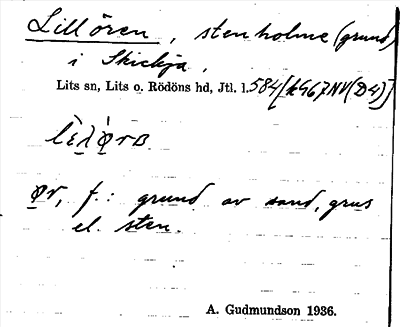 Lillören, stenholme (grund)
i Skickja.
Lits sn, Lits o. Rödöns hd, Jtl. l. 584 [k967NV(D4)]
ør, f.: grund av sand, grus
el. sten.
A. Gudmundson 1936.